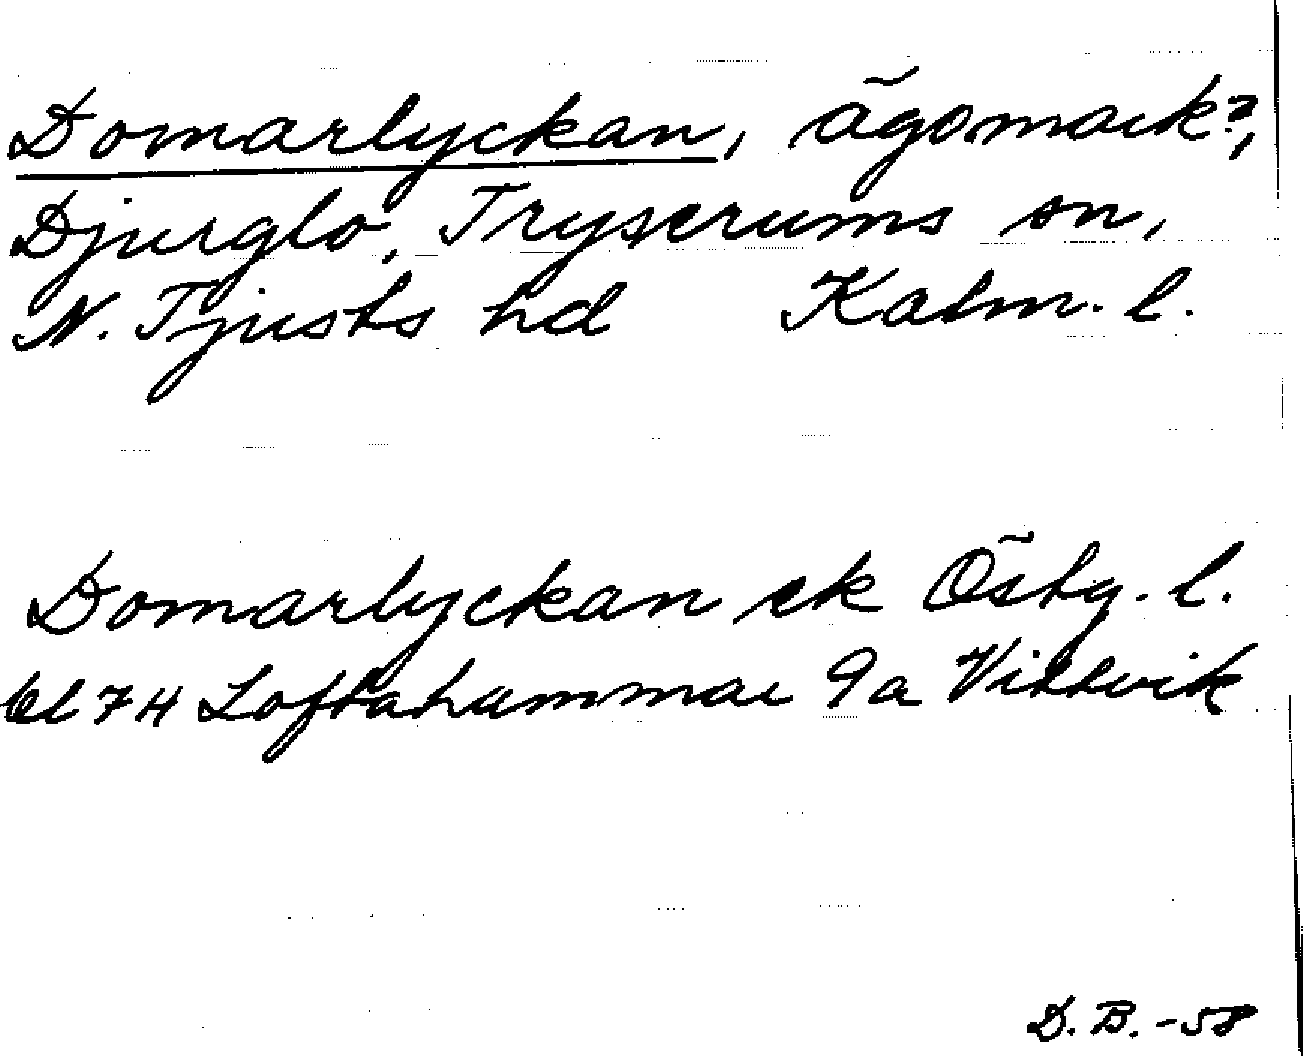 Domarlyckan, ägomark?,
Djurglo, Tryserums sn,
N. Tjusts hd Kalm. l.
Domarlyckan ek Östg. l.
bl 74 Loftahammar 9a Vittvik
D. B. -58